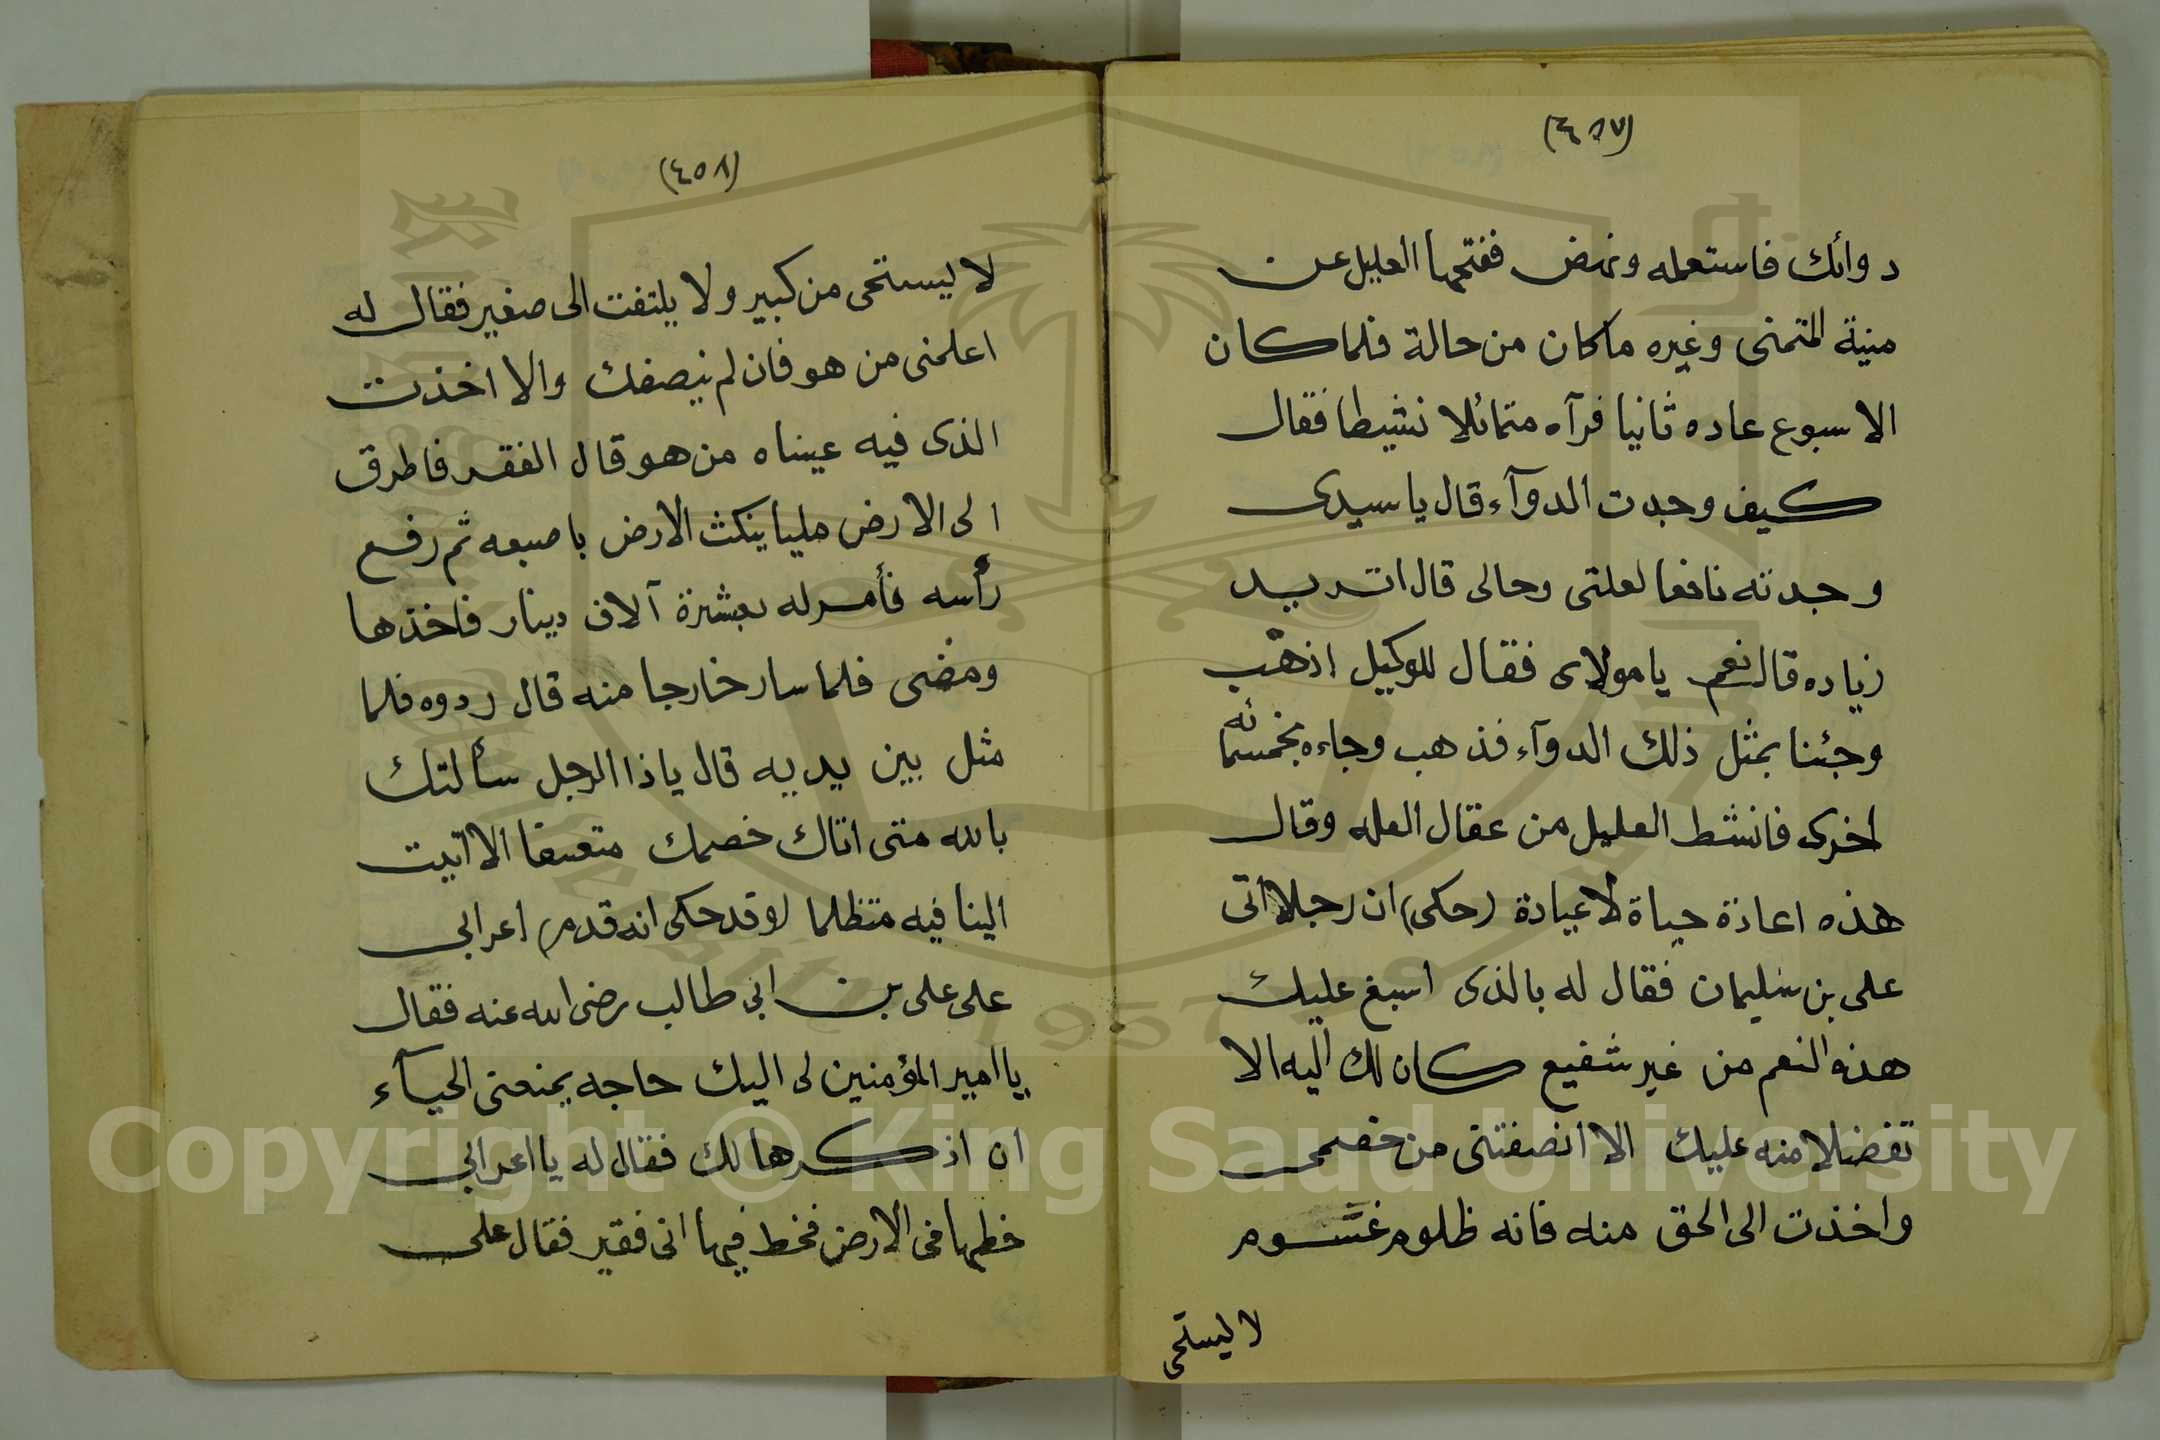 (٤٥٧)
دوائك فاستعمله ونهض ففتحها العليل عن
منية المتمنى وغيره ماكان من حالة فلما كان
الاسبوع عاده ثانيا فرآه متماثلا نشيطا فقال
كيف وجدت الدوآء قال يا سيدى
وجدته نافعا لعلتى وحالى قال اتريد
زياده قال نعم يا مولاى فقال للوكيل اذهب
وجئنا بمثل ذلك الدوآء فذهب وجاءه بخمسمائه
اخرى فانشط العليل من عقال العله وقال
هذه اعادة حياة لا عيادة (حكى) ان رجلا اتى
على بن سليمان فقال له بالذى اسبغ عليك
هذه النعم من غير شفيع كان لك اليه الا
تفضلا منه عليك الا انصفتنى من خصمى
واخذت الى الحق منه فانه ظلوم غشوم
لا يستحى
(٤٥٨)
لا يستحى من كبير ولا يلتفت الى صغير فقال له
اعلمنى من هو فان لم ينصفك والا اخذت
الذى فيه عيناه من هو قال الفقر فاطرق
الى الارض مليا ينكث الارض باصبعه ثم رفع
رأسه فأمر له بعشرة آلاف دينار فاخذها
ومضى فلما سار خارجا منه قال ردوه فلما
مثل بين يديه قال يا ذا الرجل سألتك
بالله متى اتاك خصمك متعسفا الا اتيت
الينا فيه متظلما (وقد حكى انه قدم) اعرابى
على على بن ابى طالب رضى الله عنه فقال
يا امير المؤمنين لى اليك حاجه يمنعنى الحيآء
ان اذكرها لك فقال له يا اعرابى
خطها فى الارض فخط فيها انى فقير فقال على
Copyright © King Saud University
1957